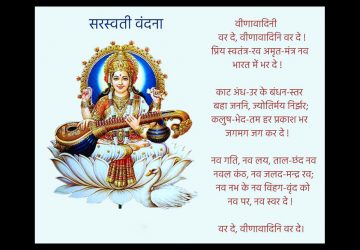 सरस्वती वंदना
वीणावादिनी
वर दे, वीणावादिनि वर दे !
प्रिय स्वतंत्र-रव अमृत-मंत्र नव
भारत में भर दे !
काट अंध-उर के बंधन-स्तर
बहा जननि, ज्योतिर्मय निर्झर;
कलुष-भेद-तम हर प्रकाश भर
जगमग जग कर दे !
नव गति, नव लय, ताल-छंद नव
नवल कंठ, नव जलद-मन्द्र रव;
नव नभ के नव विहग-वृंद को
नव पर, नव स्वर दे !
वर दे, वीणावादिनि वर दे।